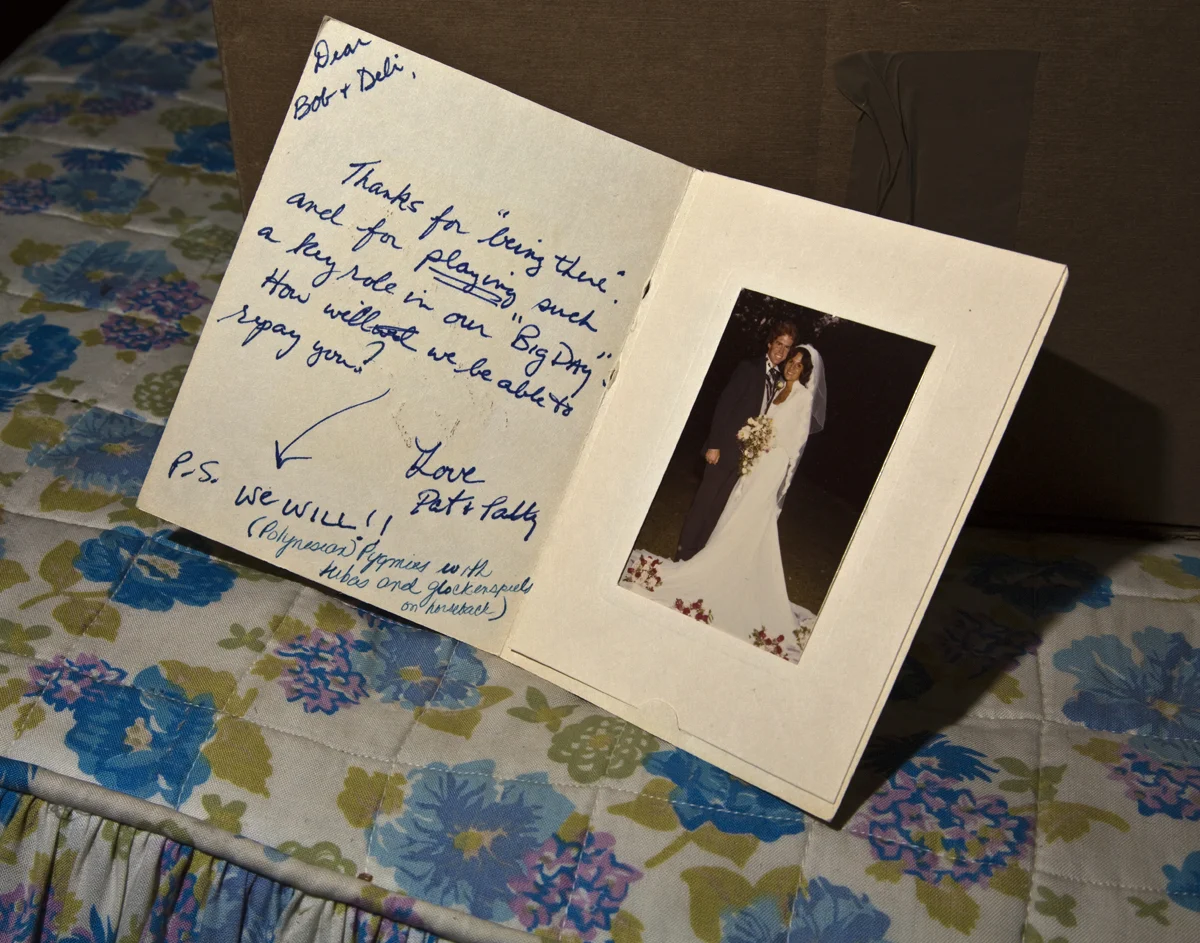 Dear
Bob + Debi,
Thanks for "being there".
and for playing such
a key role in our "Big DAy".
How will we be able to
repay you?
Love
Pat + Patty
P.S. We WILL!!
(Polynesian) Pygmies with
tubas and glockenspiels
on horseback)